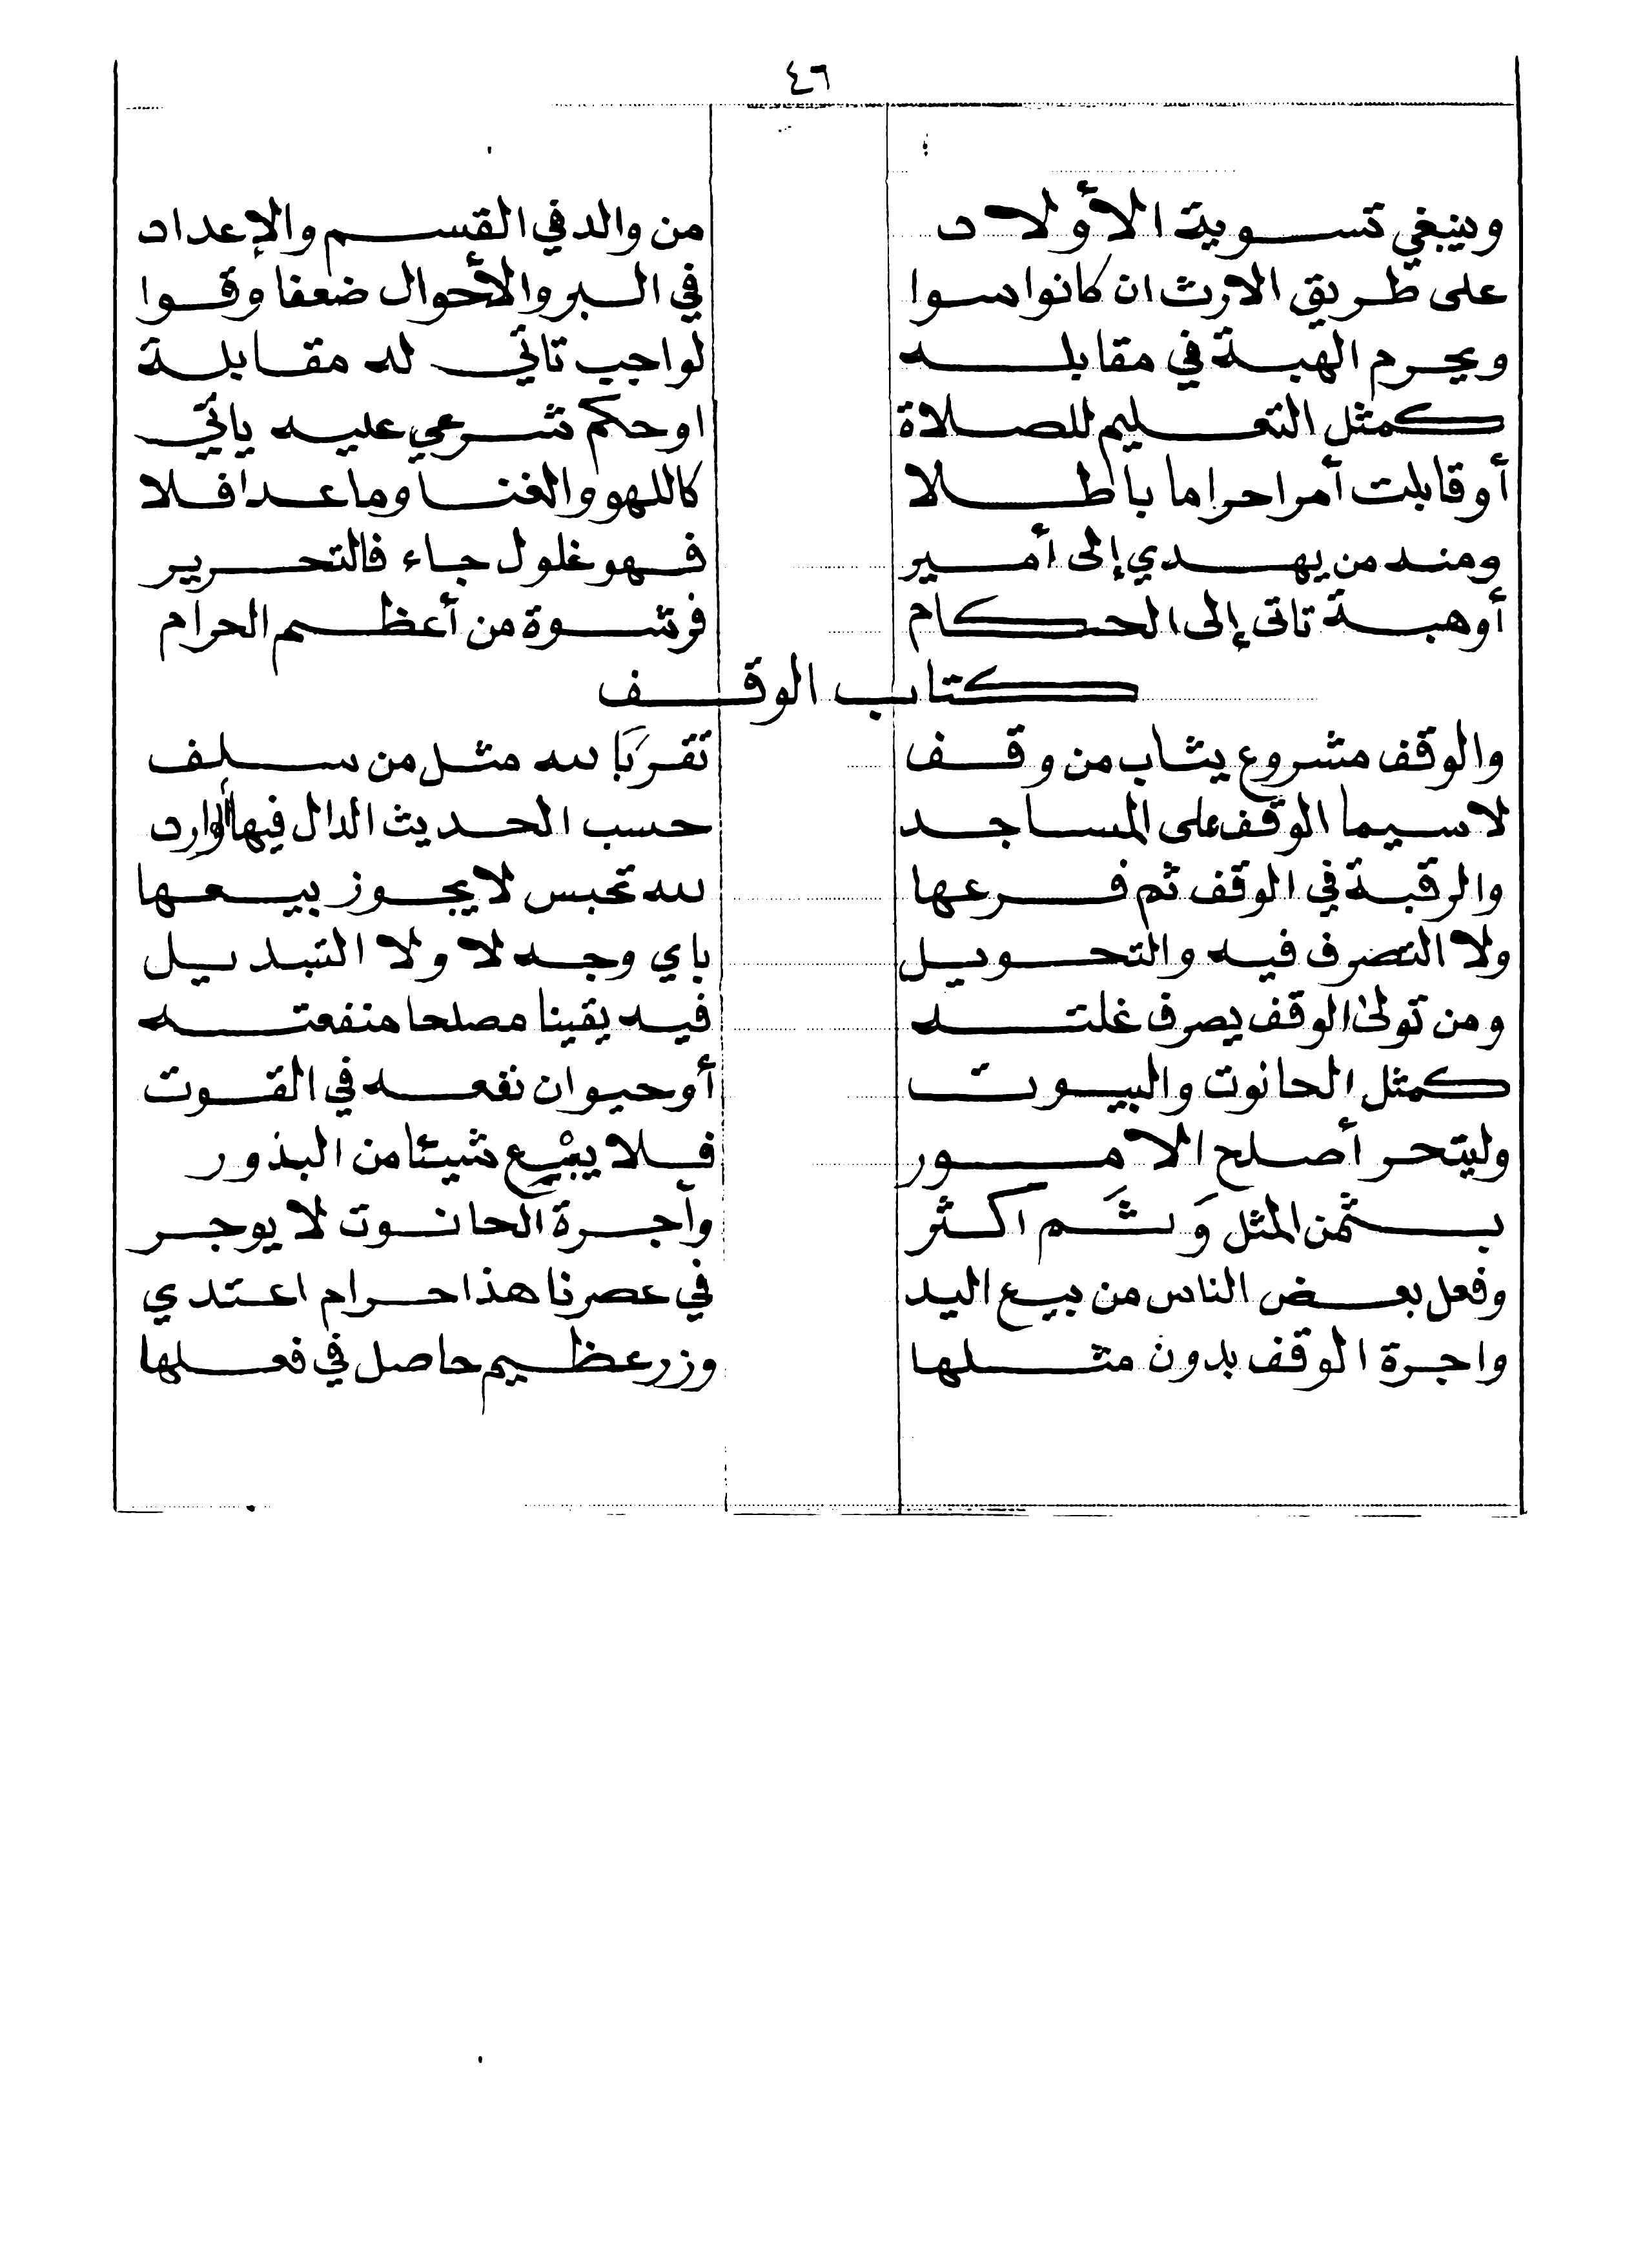 ٤٦
وينبغي تسوية الأولاد من والد في القسم والإعداد
على طريق الارث ان كانوا سوا في البر والأحوال ضعفا وقوا
ويحرم الهبة في مقابله لواجب تاتي له مقابلة
كمثل التعليم للصلاة او حكم شرعي عليه ياتي
أو قابلت أمرا حراما باطلا كاللهو والغنا وما عدا فلا
ومنه من يهدي إلى أمير فهو غلول جاء فالتحرير
أو هبة تاتى إلى الحكام فرشوة من أعظم الحرام
كتاب الوقف
والوقف مشروع يثاب من وقف تقربًا لله مثل من سلف
لا سيما الوقف على المساجد حسب الحديث الدال فيها الوارد
والرقبة في الوقف ثم فرعها لله تحبس لا يجوز بيعها
ولا التصرف فيه والتحويل باي وجه لا ولا التبديل
ومن تولى الوقف يصرف غلته فيه يقينا مصلحا منفعته
كمثل الحانوت والبيوت أو حيوان نفعه في القوت
وليتحر أصلح الامور فلا يبيع شيئا من البذور
بثمن المثل وَثَم اكثر وأجرة الحانوت لا يوجر
وفعل بعض الناس من بيع اليد في عصرنا هذا حرام اعتدي
واجرة الوقف بدون مثلها وزر عظيم حاصل في فعلها